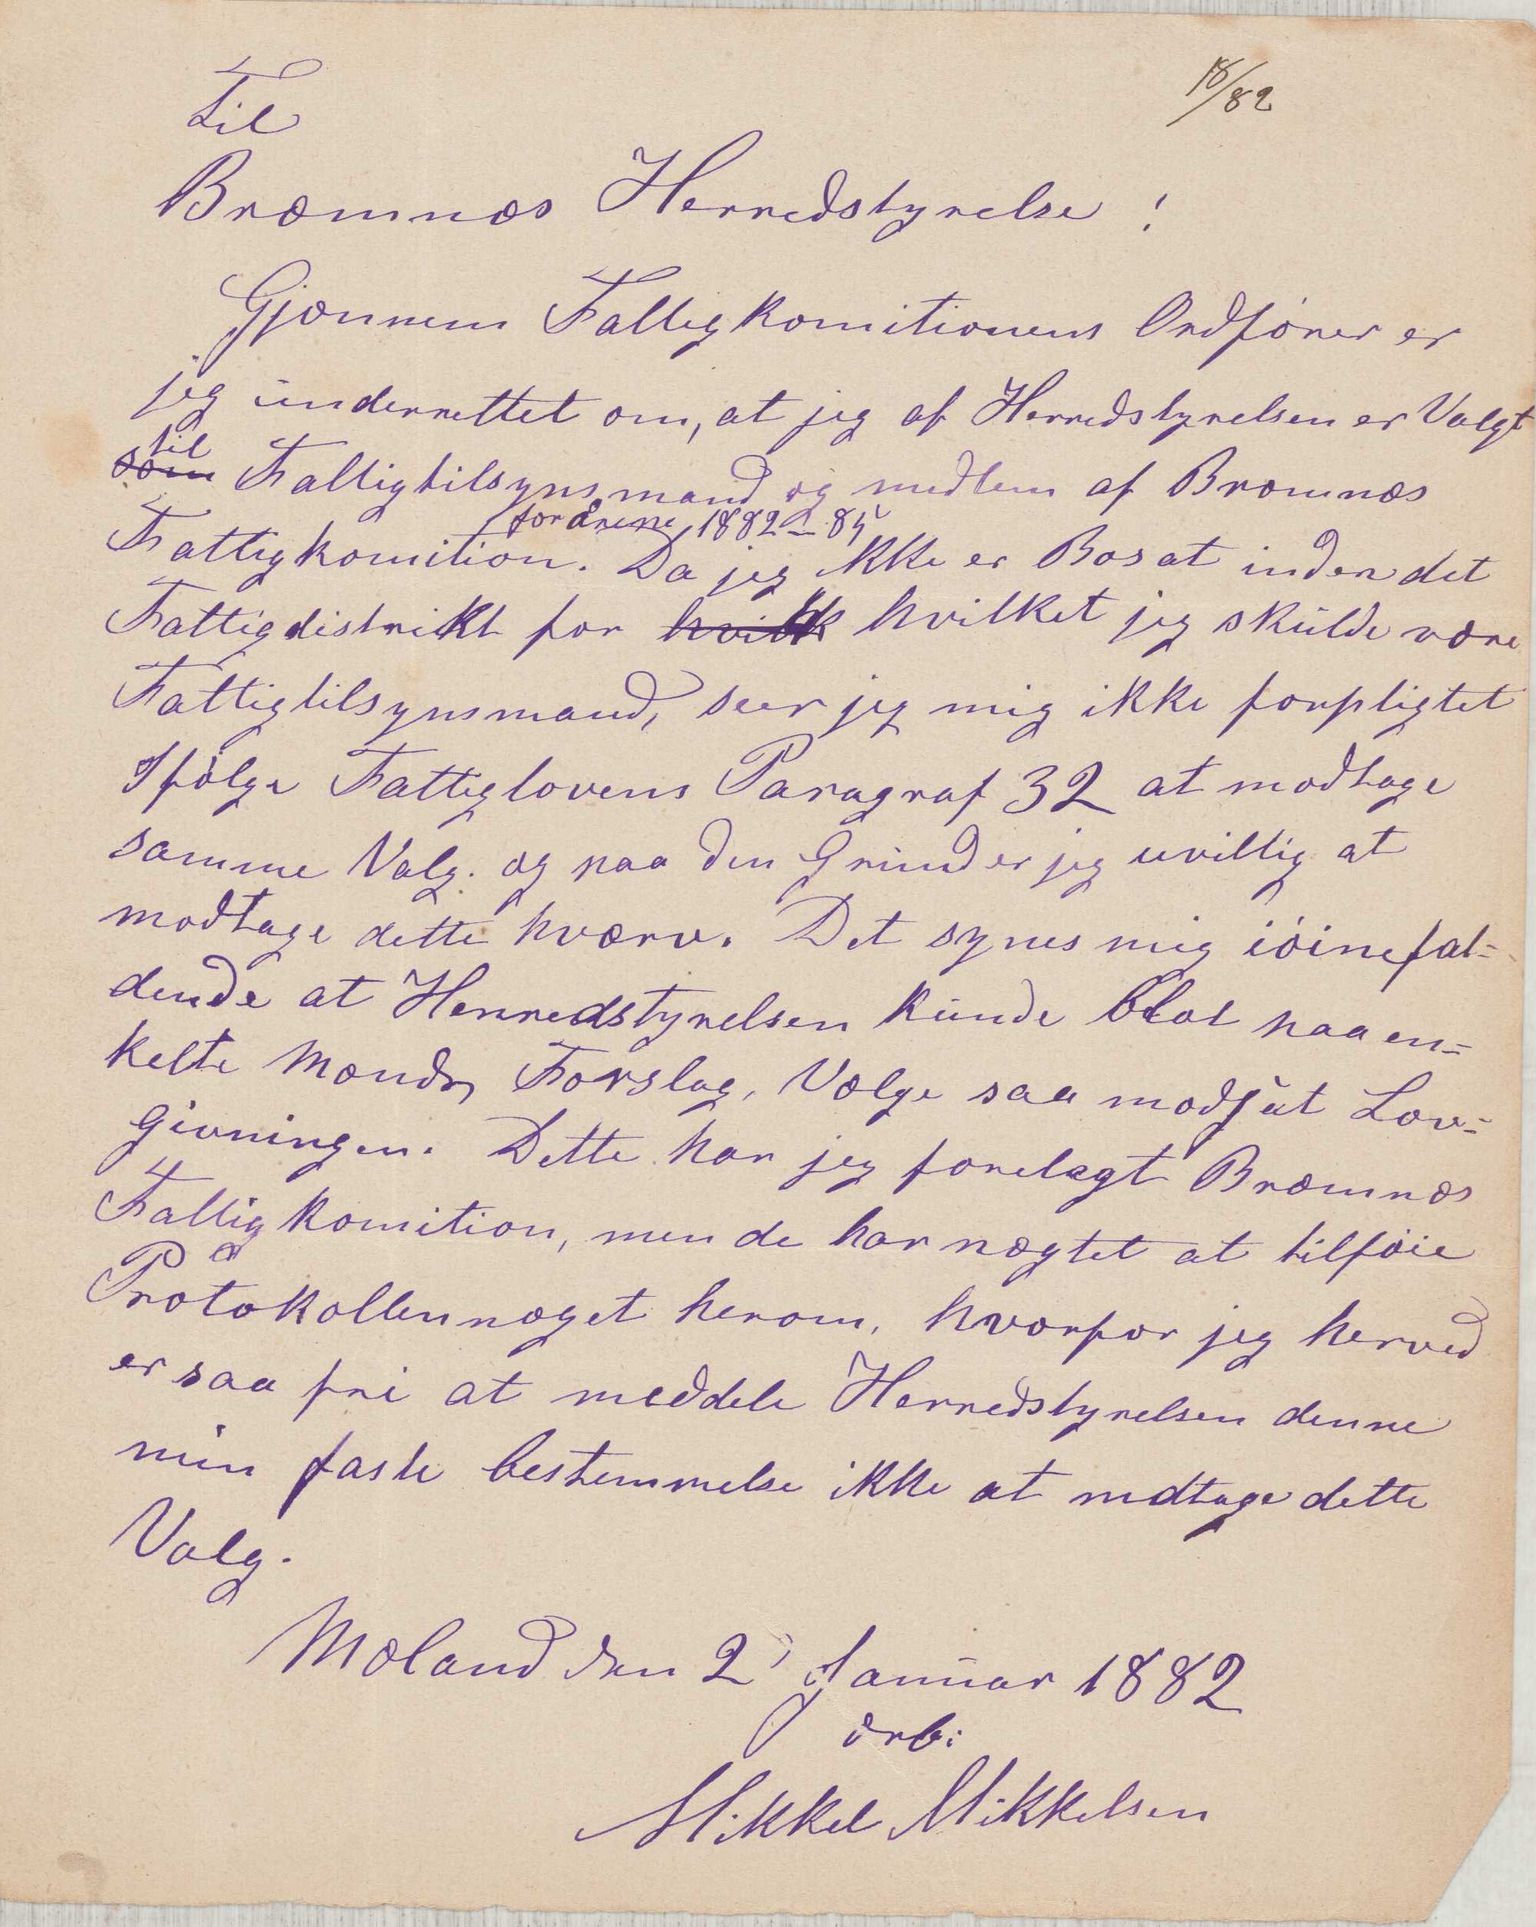 18/82
Til
Bræmnæs Herredstyrelse !
Gjænnem Fattigkomitionens Ordfører er
jeg underrettet om, at jeg af Herredstyrelsen er Valgt
til
som Fattigtilsynsmand og medlem af Bræmnæs
for årene 1882–85
Fattigkomition. Da jeg ikke er Bosat inden det
Fattigdistrikt for hvilk hvilket jeg skulde være
Fattigtilsynsmand, seer jeg mig ikke forpligtet
Ifølge Fattiglovens Paragraf 32 at modtage
samme Valg. og paa den Grund er jeg uvillig at
modtage dette hværv. Det synes mig iøinefal=
dende at Herredstyrelsen kunde blot paa en=
kelte Mænds Forslag, Vælge saa modsat Lov=
givningen. Dette har jeg forelagt Bræmnæs
Fattigkomition, men de har nægtet at tilføie
Protokollen noget herom, hvorfor jeg herved
er saa fri at meddele Herredstyrelsen denne
min faste bestemmelse ikke at mdtage dette
Valg.
Mæland den 2' Januar 1882
ærb:
Mikkel Mikkelsen